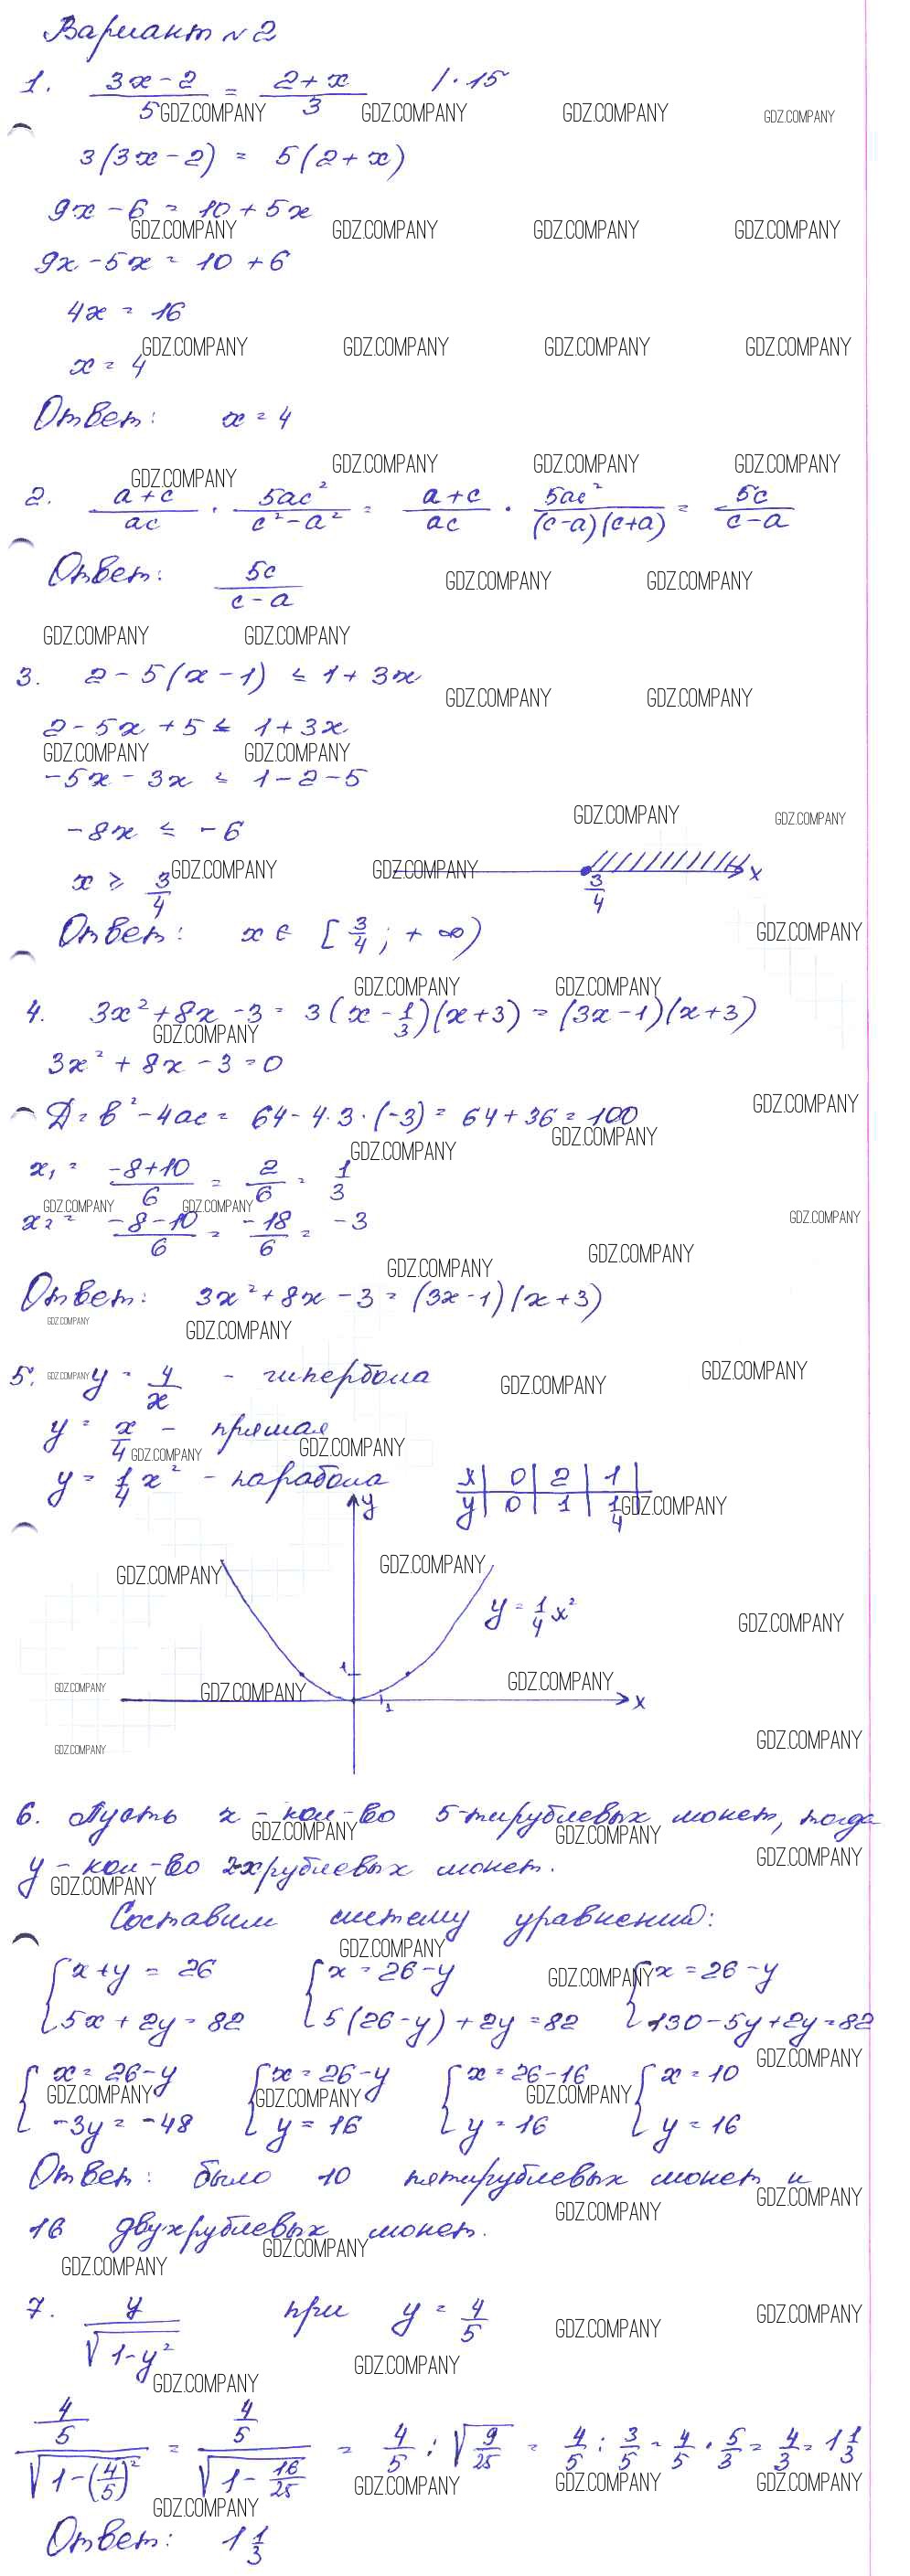 Вариант №2
1. (3x-2)/5 = (2+x)/3 /·15
GDZ.COMPANY GDZ.COMPANY GDZ.COMPANY GDZ.COMPANY
3(3x-2) = 5(2+x)
9x-6 = 10+5x
GDZ.COMPANY GDZ.COMPANY GDZ.COMPANY GDZ.COMPANY
9x-5x = 10+6
4x = 16
GDZ.COMPANY GDZ.COMPANY GDZ.COMPANY GDZ.COMPANY
x = 4
Ответ: x = 4
GDZ.COMPANY GDZ.COMPANY GDZ.COMPANY GDZ.COMPANY
2. (a+c)/(ac) · 5ac²/(c²-a²) = (a+c)/(ac) · 5ac²/((c-a)(c+a)) = 5c/(c-a)
Ответ: 5c/(c-a)
GDZ.COMPANY GDZ.COMPANY
GDZ.COMPANY GDZ.COMPANY
3. 2-5(x-1) ≤ 1+3x
GDZ.COMPANY GDZ.COMPANY
2-5x+5 ≤ 1+3x
GDZ.COMPANY GDZ.COMPANY
-5x-3x ≤ 1-2-5
GDZ.COMPANY GDZ.COMPANY
-8x ≤ -6
GDZ.COMPANY GDZ.COMPANY
x ≥ 3/4
3/4 x
Ответ: x ∈ [3/4; +∞)
GDZ.COMPANY
GDZ.COMPANY GDZ.COMPANY
4. 3x²+8x-3 = 3(x-1/3)(x+3) = (3x-1)(x+3)
GDZ.COMPANY
3x²+8x-3=0
GDZ.COMPANY
Д = b²-4ac = 64-4·3·(-3) = 64+36 = 100
GDZ.COMPANY GDZ.COMPANY
x₁ = (-8+10)/6 = 2/6 = 1/3
GDZ.COMPANY GDZ.COMPANY GDZ.COMPANY
x₂ = (-8-10)/6 = -18/6 = -3
GDZ.COMPANY GDZ.COMPANY
Ответ: 3x²+8x-3 = (3x-1)(x+3)
GDZ.COMPANY GDZ.COMPANY
5. y = 4/x - гипербола
GDZ.COMPANY GDZ.COMPANY GDZ.COMPANY
y = x/4 - прямая
GDZ.COMPANY GDZ.COMPANY
y = 1/4 x² - парабола
x | 0 | 2 | 1 |
y | 0 | 1 | 1/4 |
GDZ.COMPANY
y
GDZ.COMPANY GDZ.COMPANY
y = 1/4 x²
GDZ.COMPANY
1
GDZ.COMPANY GDZ.COMPANY GDZ.COMPANY
1 x
GDZ.COMPANY GDZ.COMPANY
6. Пусть x - кол-во 5-тирублевых монет, тогда
GDZ.COMPANY GDZ.COMPANY
y - кол-во 2-хрублевых монет.
GDZ.COMPANY GDZ.COMPANY
Составим систему уравнений:
GDZ.COMPANY
{x+y = 26 {x = 26-y {x = 26-y
GDZ.COMPANY
5x+2y = 82 5(26-y)+2y = 82 130-5y+2y = 82
GDZ.COMPANY
{x = 26-y {x = 26-y {x = 26-16 {x = 10
GDZ.COMPANY GDZ.COMPANY GDZ.COMPANY
-3y = -48 y = 16 y = 16 y = 16
Ответ: было 10 пятирублевых монет и
GDZ.COMPANY GDZ.COMPANY
16 двухрублевых монет.
GDZ.COMPANY GDZ.COMPANY
7. y/√(1-y²) при y = 4/5
GDZ.COMPANY GDZ.COMPANY
GDZ.COMPANY GDZ.COMPANY
(4/5)/√(1-(4/5)²) = (4/5)/√(1-16/25) = 4/5 : √(9/25) = 4/5 : 3/5 = 4/5 · 5/3 = 4/3 = 1 1/3
GDZ.COMPANY GDZ.COMPANY GDZ.COMPANY GDZ.COMPANY
Ответ: 1 1/3